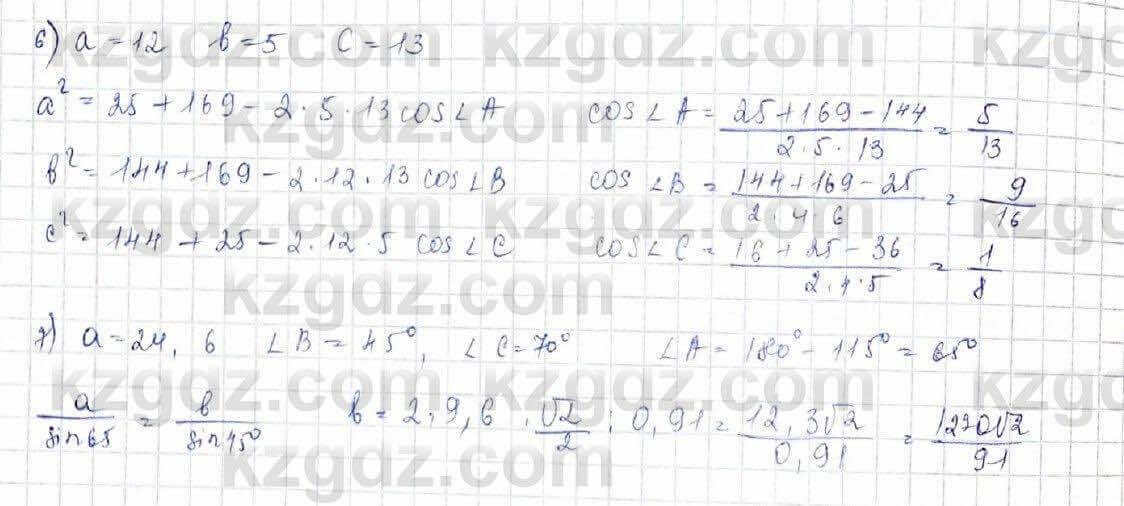 6) a = 12 b = 5 c = 13
a² = 25 + 169 - 2 · 5 · 13 cos∠A cos∠A = (25 + 169 - 144)/(2 · 5 · 13) = 5/13
b² = 144 + 169 - 2 · 12 · 13 cos∠B cos∠B = (144 + 169 - 25)/(2 · 4 · 6) = 9/16
c² = 144 + 25 - 2 · 12 · 5 cos∠C cos∠C = (16 + 25 - 36)/(2 · 4 · 5) = 1/8
7) a = 24, 6 ∠B = 45°, ∠C = 70° ∠A = 180° - 115° = 65°
a/sin65 = b/sin45° b = 2 · 9, 6 · √2/2 : 0,91 = 12,3√2/0,91 = 1230√2/91
kzgdz.com